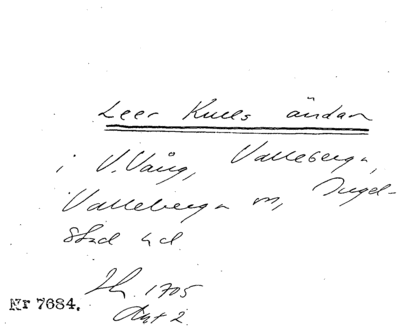 Leer Kulls ändan
i V. Vång, Valleberga,
Valleberga sn, Ingel-
stad hd
Lh. 1705
Akt 2
Nr 7684.